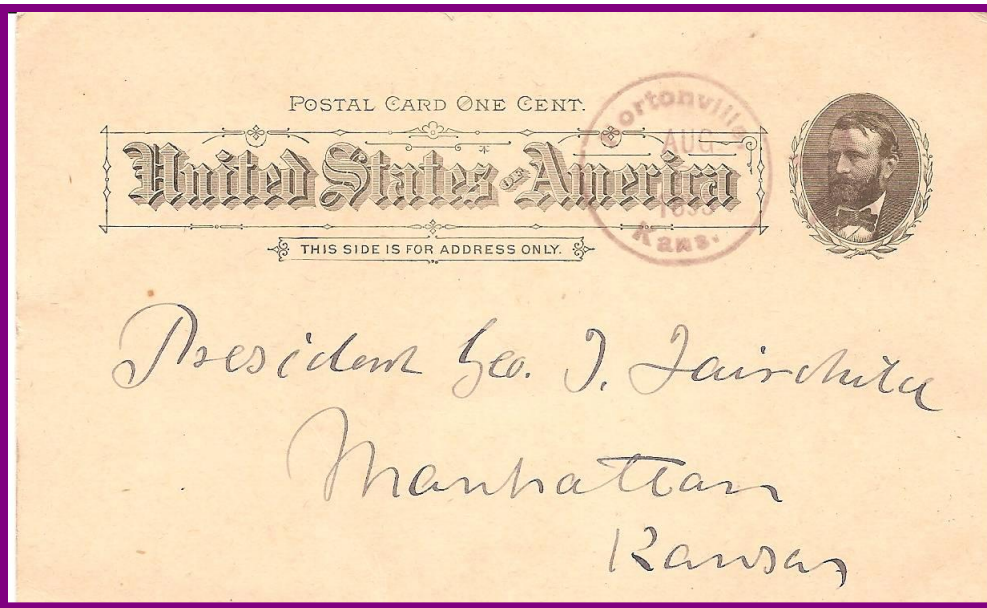 POSTAL CARD ONE CENT.
United States OF America
THIS SIDE IS FOR ADDRESS ONLY.
AUG
Kans.
President Geo. T. Fairchild
Manhattan
Kansas